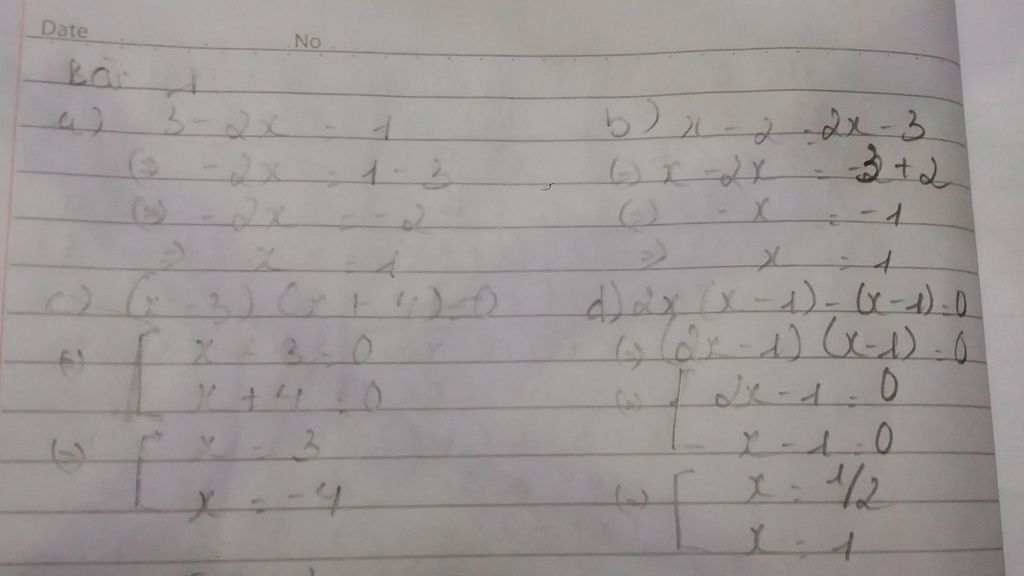 Date No
Bài 1
a) 3 - 2x = 1
(=) -2x = 1 - 3
(=) -2x = -2
=> x = 1
b) x - 2 = 2x - 3
(=) x - 2x = -3 + 2
(=) - x = -1
=> x = 1
c) (x - 3) (x + 4) = 0
(=) [ x - 3 = 0
x + 4 = 0
(=) [ x = 3
x = -4
d) 2x (x - 1) - (x - 1) = 0
(=) (2x - 1) (x - 1) = 0
(=) [ 2x - 1 = 0
x - 1 = 0
(=) [ x = 1/2
x = 1